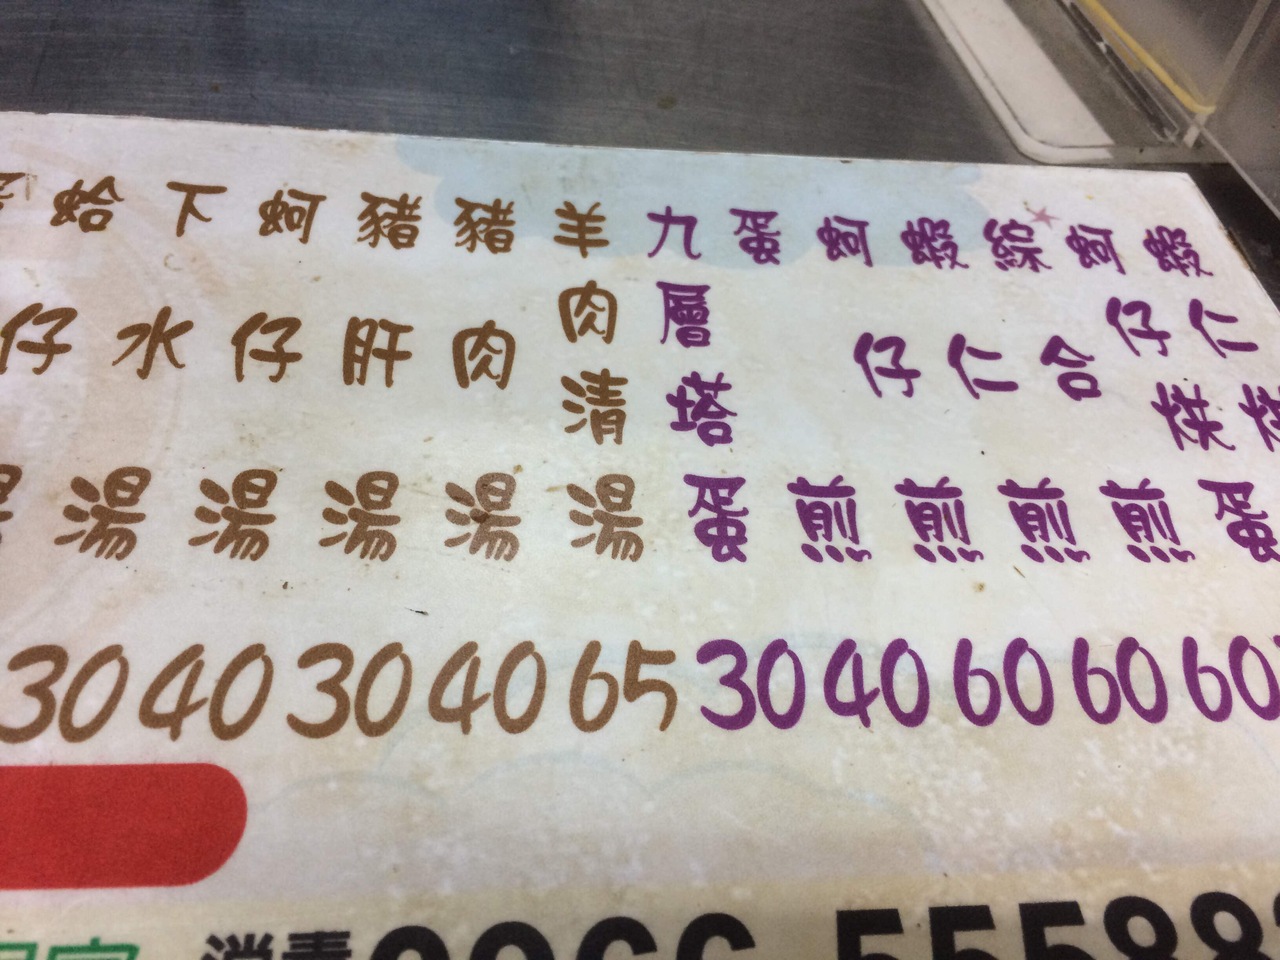 蝦仁
蚵仔烘蛋
綜合煎 60
蝦仁煎 60
蚵仔煎 60
蛋煎 40
九層塔蛋 30
羊肉清湯 65
豬肉湯 40
豬肝湯 30
蚵仔湯 40
下水湯 30
蛤仔